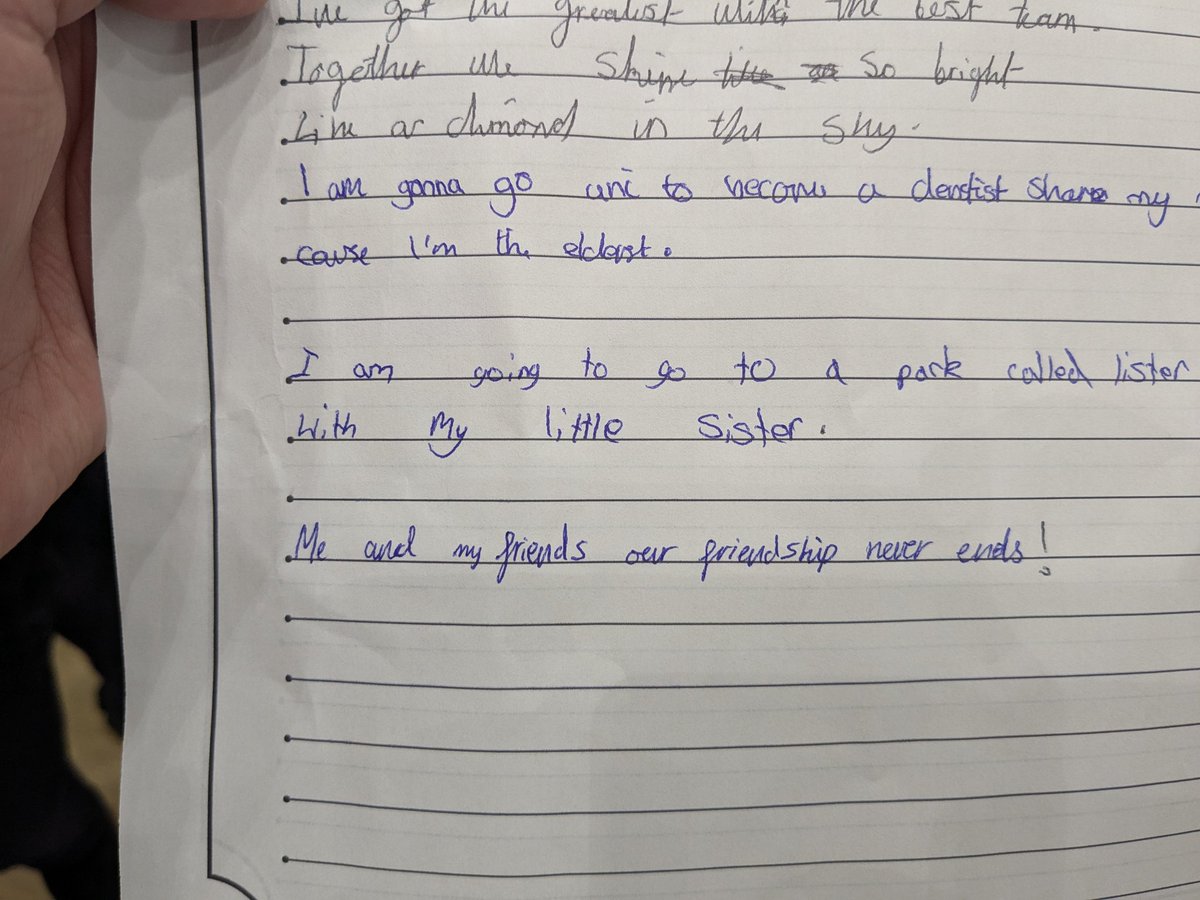 I've got the greatest with the best team.
Together we shine so bright
Like a dimond in the sky.
I am gonna go uni to become a dentist share my
cause I'm the eldest.
I am going to go to a park called lister
with My little Sister.
Me and my friends our friendship never ends!